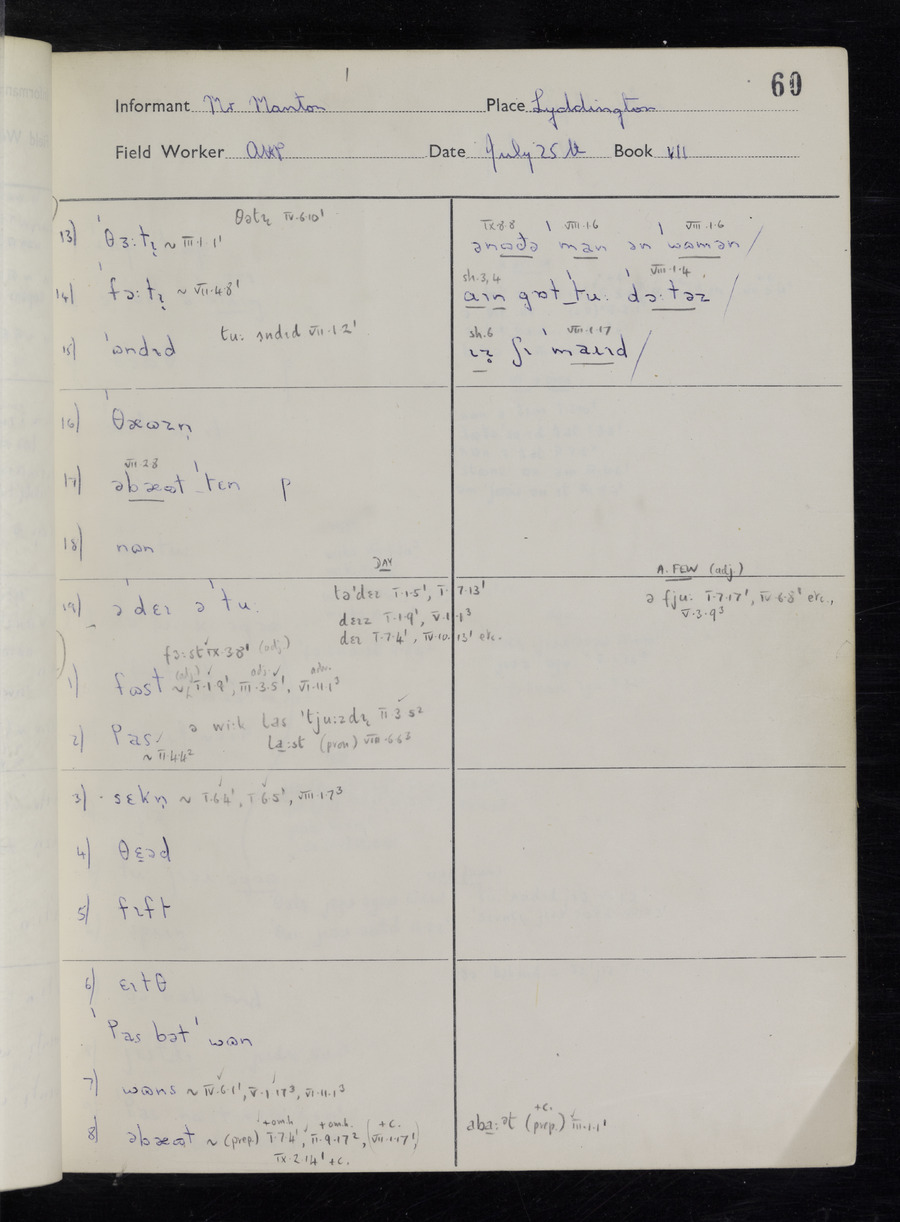 60
Informant Mr Manton Place Lyddington
Field Worker Date July 25th Book VII
θətɪ̣ IV.6.10'
13) 'θɜ:tɪ̣ ~ III.1.1'
14) 'fɔ:tɪ̣ ~ VII.4.8'
tu: ɷndɹd VII.1.2'
15) 'ɷndɹd
IX.8.8 VIII.1.6 VIII.1.6
ənɷðə 'man ən 'wɷmən /
sh.3,4 VIII.1.4
aɪn gɒt 'tu: 'dɔ:təz /
sh.6 VIII.1.17
ɪz̥ ʃɪ 'maɪɪd /
16) 'θæɷzn̩
VII.2.8
17) əbæɷt 'tɛn p
18) wɒn
DAY
19) ə 'dɛɪ ə 'tu:
tə'dɛɪ I.1.5', I.7.13'
dɛɪz I.1.9', V.1.13
dɛɪ I.7.4', IV.10.13' etc.
A FEW (adj.)
ə fju: I.7.17', IV.6.8' etc.,
V.3.9³
fɜ:st IX.3.8' (adj)
(adj) adj. adv.
1) fɷst ~ I.1.9', III.3.5', VI.11.1³
2) las ə wi:k las 'tju:zdɪ̣ II.3 s²
~ II.4.4² la:st (pron) VIII.6.6³
3) sɛkn̩ ~ I.6.4', I.6.5', VIII.1.7³
4) θɛəd
5) fɪft
6) ɛɪtθ
'las bət 'wɒn
7) wɒns ~ IV.6.1', V.1.17³, VI.11.1³
+omh +omh. +c.
8) əbæɷt ~ (prep.) I.7.4', II.9.17², (VII.1.17')
IX.2.14' +c.
+c.
aba:ət (prep.) III.1.1'